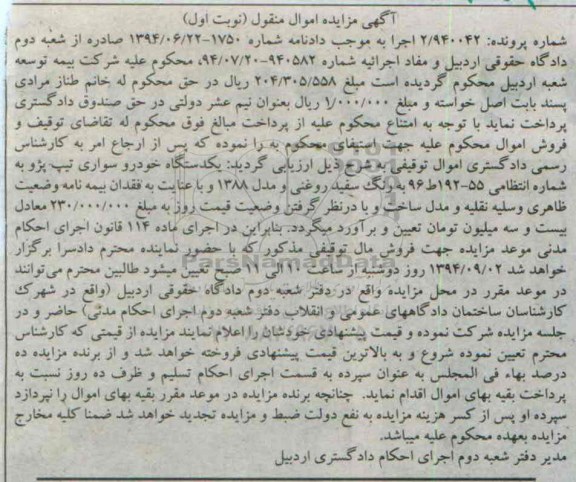 آگهی مزایده اموال منقول (نوبت اول)
شماره پرونده: ۲/۹۴۰۰۴۲ اجرا به موجب دادنامه شماره ۱۷۵۰-۱۳۹۴/۰۶/۲۲ صادره از شعبه دوم
دادگاه حقوقی اردبیل و مفاد اجرائیه شماره ۹۴۰۵۸۲-۹۴/۰۷/۲۰، محکوم علیه شرکت بیمه توسعه
شعبه اردبیل محکوم گردیده است مبلغ ۲۰۴/۳۰۵/۵۵۸ ریال در حق محکوم له خانم طناز مرادی
پسند بابت اصل خواسته و مبلغ ۱/۰۰۰/۰۰۰ ریال بعنوان نیم عشر دولتی در حق صندوق دادگستری
پرداخت نماید با توجه به امتناع محکوم علیه از پرداخت مبالغ فوق محکوم له تقاضای توقیف و
فروش اموال محکوم علیه جهت استیفای محکوم به را نموده که پس از ارجاع امر به کارشناس
رسمی دادگستری اموال توقیفی به شرح ذیل ارزیابی گردید: یکدستگاه خودرو سواری تیپ پژو به
شماره انتظامی ۵۵-۱۹۲ط۹۶ به رنگ سفید روغنی و مدل ۱۳۸۸ و با عنایت به فقدان بیمه نامه وضعیت
ظاهری وسلیه نقلیه و مدل ساخت و با درنظر گرفتن وضعیت قیمت روز به مبلغ ۲۳۰/۰۰۰/۰۰۰ معادل
بیست و سه میلیون تومان تعیین و برآورد میگردد. بنابراین در اجرای ماده ۱۱۴ قانون اجرای احکام
مدنی موعد مزایده جهت فروش مال توقیفی مذکور که با حضور نماینده محترم دادسرا برگزار
خواهد شد ۱۳۹۴/۰۹/۰۲ روز دوشنبه از ساعت ۱۰ الی ۱۱ صبح تعیین میشود طالبین محترم می‌توانند
در موعد مقرر در محل مزایده واقع در دفتر شعبه دوم دادگاه حقوقی اردبیل (واقع در شهرک
کارشناسان ساختمان دادگاههای عمومی و انقلاب دفتر شعبه دوم اجرای احکام مدنی) حاضر و در
جلسه مزایده شرکت نموده و قیمت پیشنهادی خودشان را اعلام نمایند مزایده از قیمتی که کارشناس
محترم تعیین نموده شروع و به بالاترین قیمت پیشنهادی فروخته خواهد شد و از برنده مزایده ده
درصد بهاء فی المجلس به عنوان سپرده به قسمت اجرای احکام تسلیم و ظرف ده روز نسبت به
پرداخت بقیه بهای اموال اقدام نماید. چنانچه برنده مزایده در موعد مقرر بقیه بهای اموال را نپردازد
سپرده او پس از کسر هزینه مزایده به نفع دولت ضبط و مزایده تجدید خواهد شد ضمنا کلیه مخارج
مزایده بعهده محکوم علیه میباشد.
مدیر دفتر شعبه دوم اجرای احکام دادگستری اردبیل